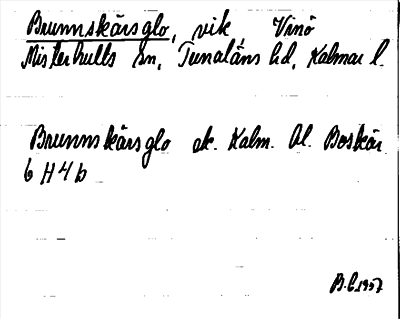 Brunnskärsglo, vik, Vinö
Misterhults sn, Tunaläns hd, Kalmar l.
Brunnskärsglo ek. Kalm. Al. Boskär
6 H 4 b
B.E 1957